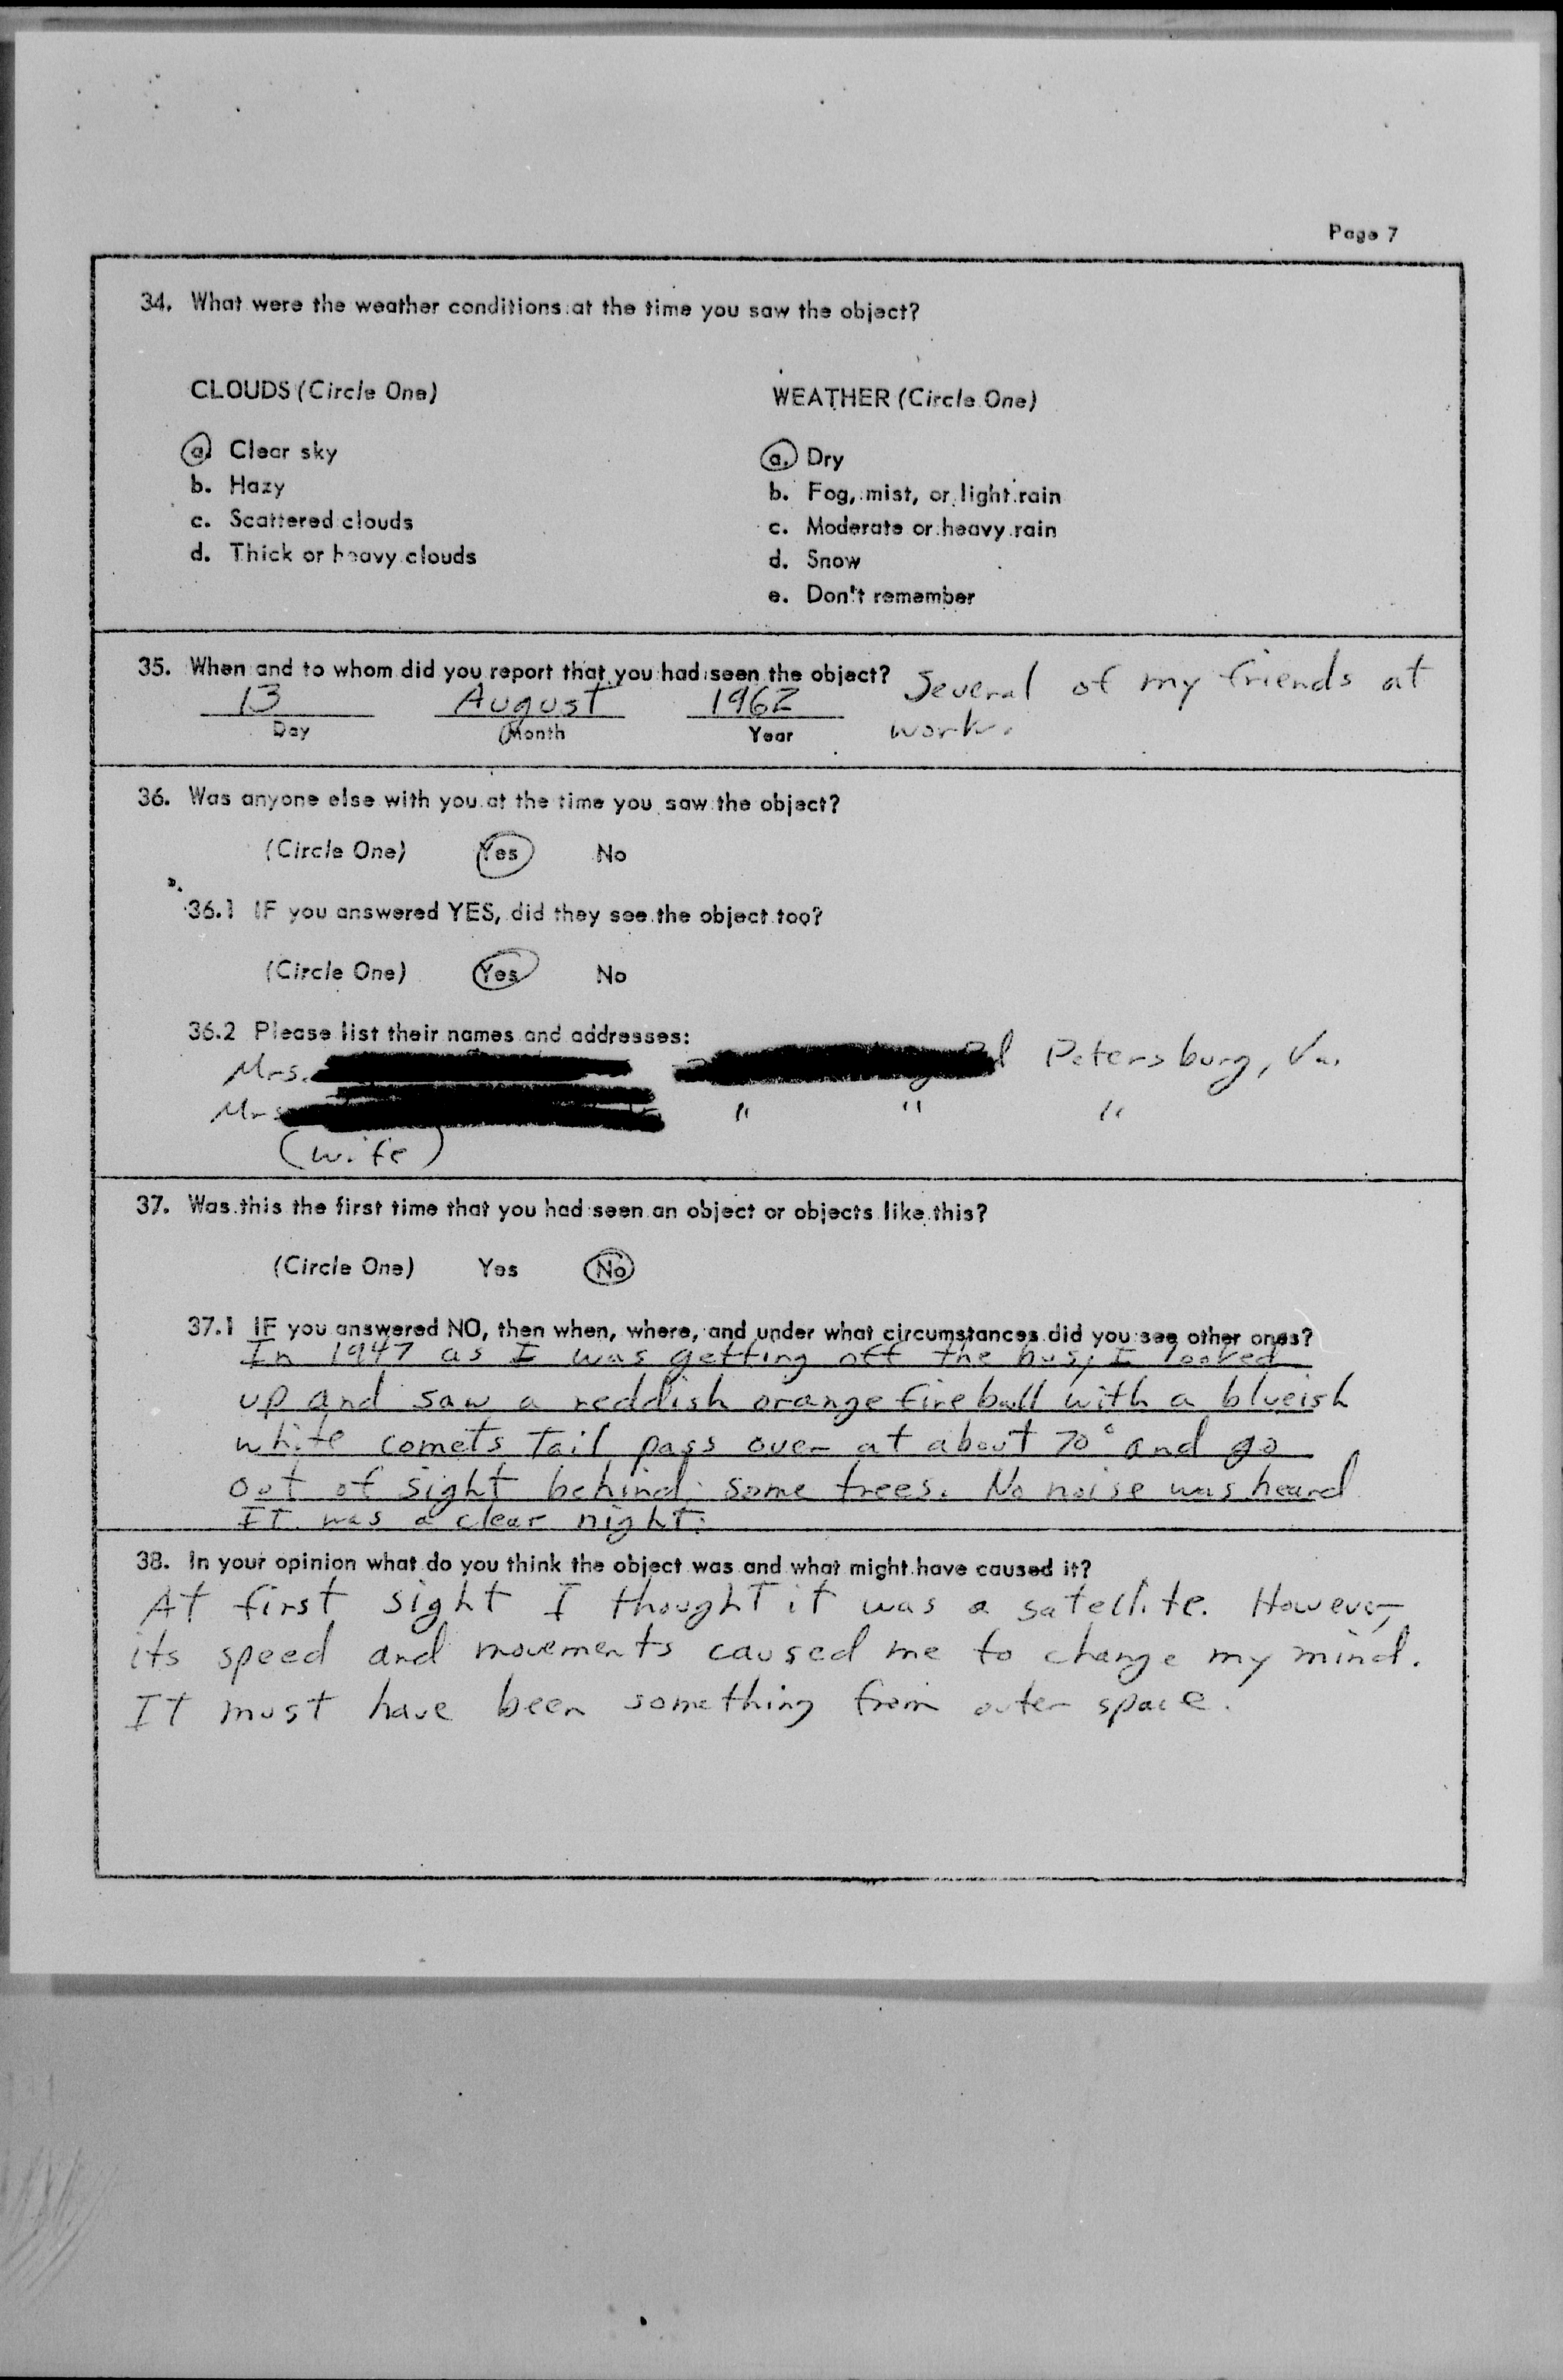 Page 7
34. What were the weather conditions at the time you saw the object?
CLOUDS (Circle One)
a. Clear sky
b. Hazy
c. Scattered clouds
d. Thick or heavy clouds
WEATHER (Circle One)
a. Dry
b. Fog, mist, or light rain
c. Moderate or heavy rain
d. Snow
e. Don't remember
35. When and to whom did you report that you had seen the object?
13 August 1962
Day Month Year
Several of my friends at
work.
36. Was anyone else with you at the time you saw the object?
(Circle One) Yes No
36.1 IF you answered YES, did they see the object too?
(Circle One) Yes No
36.2 Please list their names and addresses:
Mrs. Petersburg, Va.
Mrs " " "
(wife)
37. Was this the first time that you had seen an object or objects like this?
(Circle One) Yes No
37.1 IF you answered NO, then when, where, and under what circumstances did you see other ones?
In 1947 as I was getting off the bus, I looked
up and saw a reddish orange fireball with a blueish
white comets tail pass over at about 70° and go
out of sight behind some trees. No noise was heard
It was a clear night.
38. In your opinion what do you think the object was and what might have caused it?
At first sight I thought it was a satellite. However,
its speed and movements caused me to change my mind.
It must have been something from outer space.